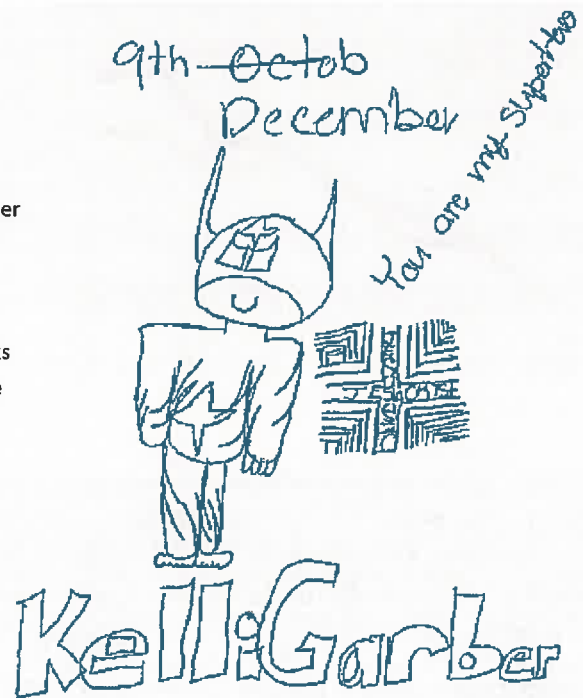 9th Octob
December
You are my Superhero
er
ks
e
KelliGarber